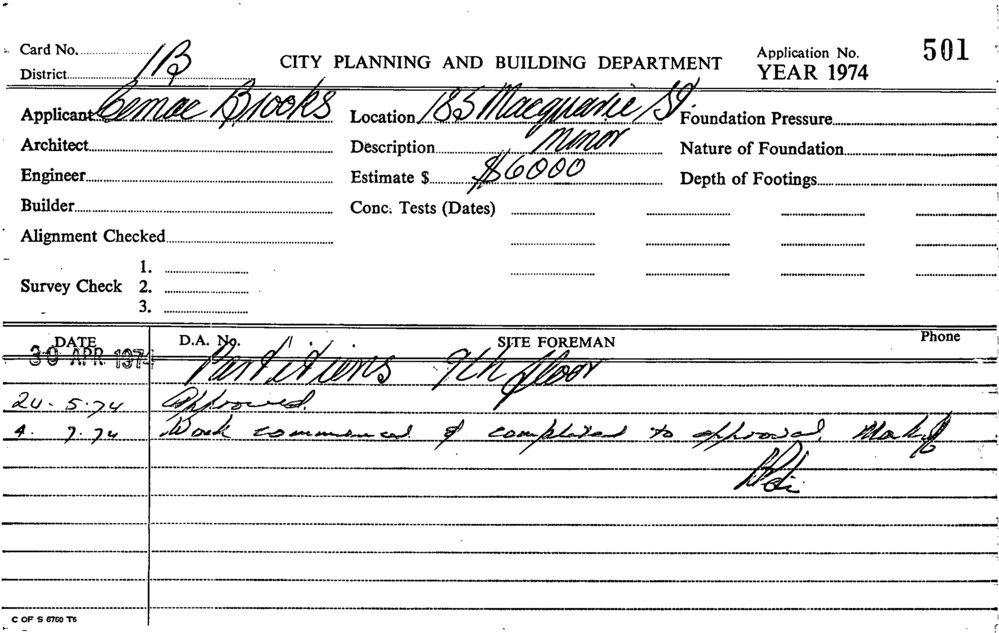 Card No. 1B
District
CITY PLANNING AND BUILDING DEPARTMENT
Application No.
YEAR 1974
501
Applicant Cemac Brooks
Location 185 Macquarie St.
Foundation Pressure
Architect
Description minor
Nature of Foundation
Engineer
Estimate $ $6000
Depth of Footings
Builder
Conc. Tests (Dates)
Alignment Checked
Survey Check
1.
2.
3.
DATE
D.A. No.
SITE FOREMAN
Phone
30 APR 1974
Partitions 9th floor
24.5.74 Approved.
4.7.74 Work commenced & completed to approval.
C OF S 6760 T6